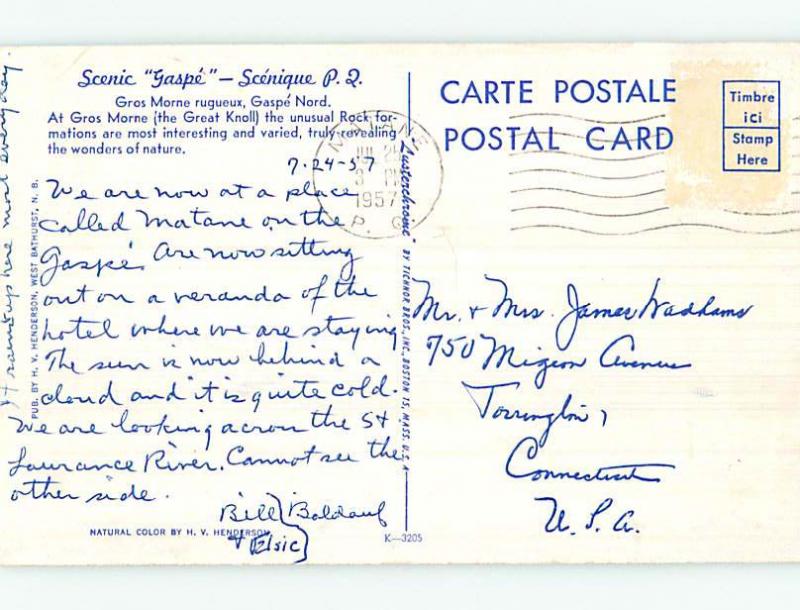 Scenic "Gaspé" — Scénique P. Q.
Gros Morne rugueux, Gaspé Nord.
At Gros Morne (the Great Knoll) the unusual Rock for-
mations are most interesting and varied, truly revealing
the wonders of nature.
7-24-57
We are now at a place
called Matane on the
Gaspé. Are now sitting
out on a veranda of the
hotel where we are staying
The sun is now behind a
cloud and it is quite cold.
We are looking across the St
Lawrance River. Cannot see the
other side.
Bill } Baldauf
+ Elsie
It rains up here most every day
PUB. BY H. V. HENDERSON, WEST BATHURST, N. B.
NATURAL COLOR BY H. V. HENDERSON
K—3205
"Lusterchrome" BY TICHNOR BROS., INC., BOSTON 15, MASS., U. S. A.
MATANE
JUL 2
1957
P. Q.
CARTE POSTALE
POSTAL CARD
Timbre
iCi
Stamp
Here
Mr. + Mrs. James Wadhams
750 Migeon Avenue
Torrington,
Connecticut
U. S. A.